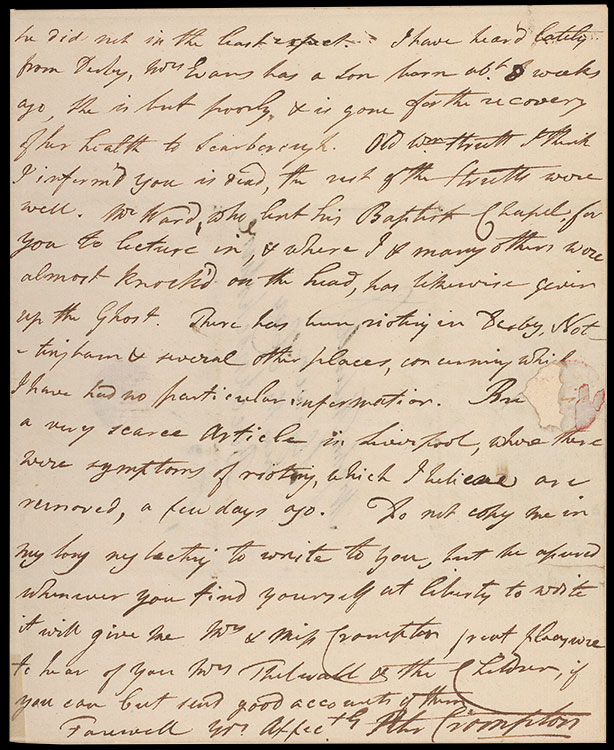 he did not in the least expect. I have heard lately
from Derby, Mrs Evans has a son born abt 8 weeks
ago, she is but poorly & is gone for the recovery
of her health to Scarborough. Old Wm Strutt I think
I inform'd you is dead, the rest of the Strutts were
well. Mr Ward, who lent his Baptist Chapel for
you to lecture in, & where I & many others were
almost knock'd on the head, has likewise given
up the Ghost. There has been rioting in Derby, Not-
-tingham & several other places, concerning which
I have had no particular information. Bre
a very scarce Article in Liverpool, where there
were symptoms of rioting, which I believe are
removed, a few days ago. Do not copy me in
my long neglecting to write to you, but be assured
whenever you find yourself at liberty to write
it will give me Mrs & Miss Crompton great pleasure
to hear of you Mrs Thelwall & the Children, if
you can but send good accounts of them
Farewell Yrs Affectly Peter Crompton